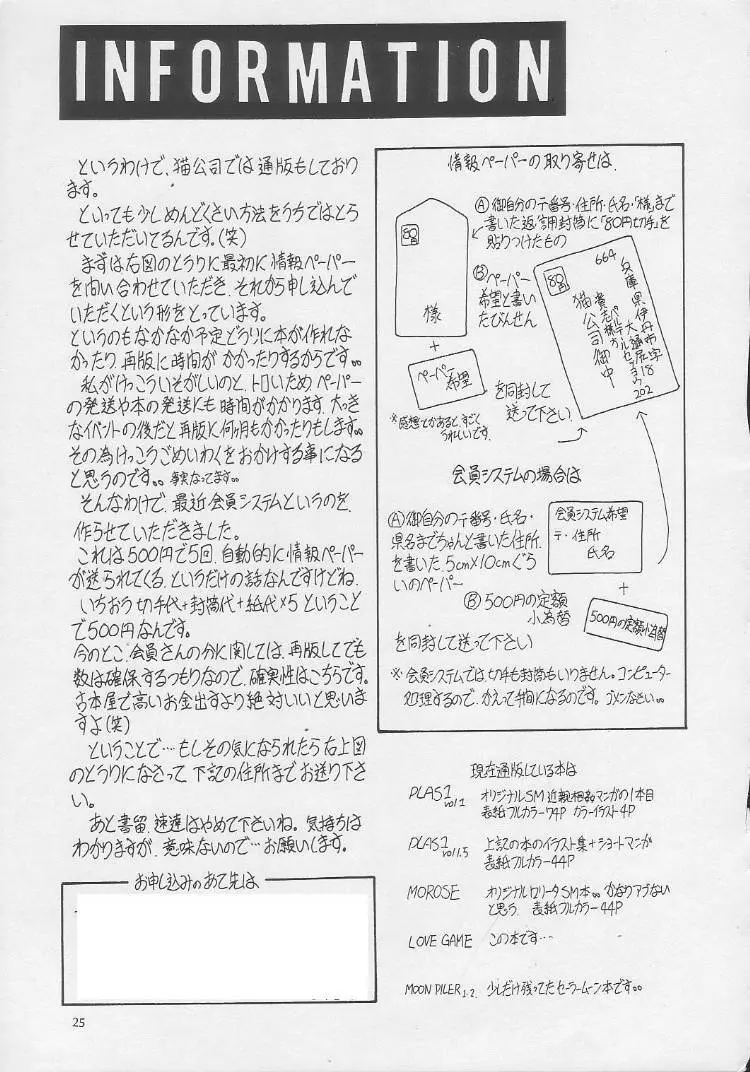 INFORMATION
というわけで、猫公司では通版もしており
ます。
といっても少しめんどくさい方法をうちではとら
せていただいてるんです。(笑)
まずは右図のとうりに最初に情報ペーパー
を問い合わせていただき、それから申し込んで
いただくという形をとっています。
というのもなかなか予定どうりに本が作れな
かったり、再版に時間がかかったりするからです。。
私がけっこういそがしいのと、トロいため、ペーパー
の発送や本の発送にも時間がかかります、大っき
なイベントの後だと再版に何ヶ月もかかったりもします。。
その為けっこうごめいわくをおかけする事になる
と思うのです。。 事実なってます。。
そんなわけで、最近、会員システムというのを、
作らせていただきました。
これは500円で5回、自動的に情報ペーパー
が送られてくる、というだけの話なんですけどね、
いちおう切手代+封筒代+紙代×5 ということ
で500円なんです。
今のとこ、会員さんの分に関しては、再版してでも
数は確保するつもりなので、確実性はこちらです。
古本屋で高いお金出すより絶対いいと思いま
すよ(笑)
ということで…もしその気になられたら右上図
のとうりになさって下記の住所までお送り下さ
い。
あと書留、速達はやめて下さいね。気持ちは
わかりますが、意味ないので…お願いします。
お申し込みのあて先は
25
情報ペーパーの取り寄せは、
Ⓐ御自分の〒番号・住所・氏名・「様」まで
書いた返信用封筒に「80円切手」を
貼りつけたもの
80
様
Ⓑペーパー
希望と書い
たびんせん
+
ペーパー
希望
を同封して
送って下さい
※感想とかあると、すごく
うれしいです。
80
猫公司御中
会員システムの場合は
Ⓐ御自分の〒番号・氏名・
県名までちゃんと書いた住所、
を書いた5cm×10cmぐら
いのペーパー
会員システム希望
〒・住所
氏名
+
Ⓑ500円の定額
小為替
500円の定額小為替
を同封して送って下さい
※会員システムでは、切手も封筒もいりません。コンピューター
処理するので、かえって手間になるのです。ゴメンなさい。。
現在通版している本は
LOVE GAME この本です…
MOON PILER 1.2. 少しだけ残ってたセーラームーン本です。。